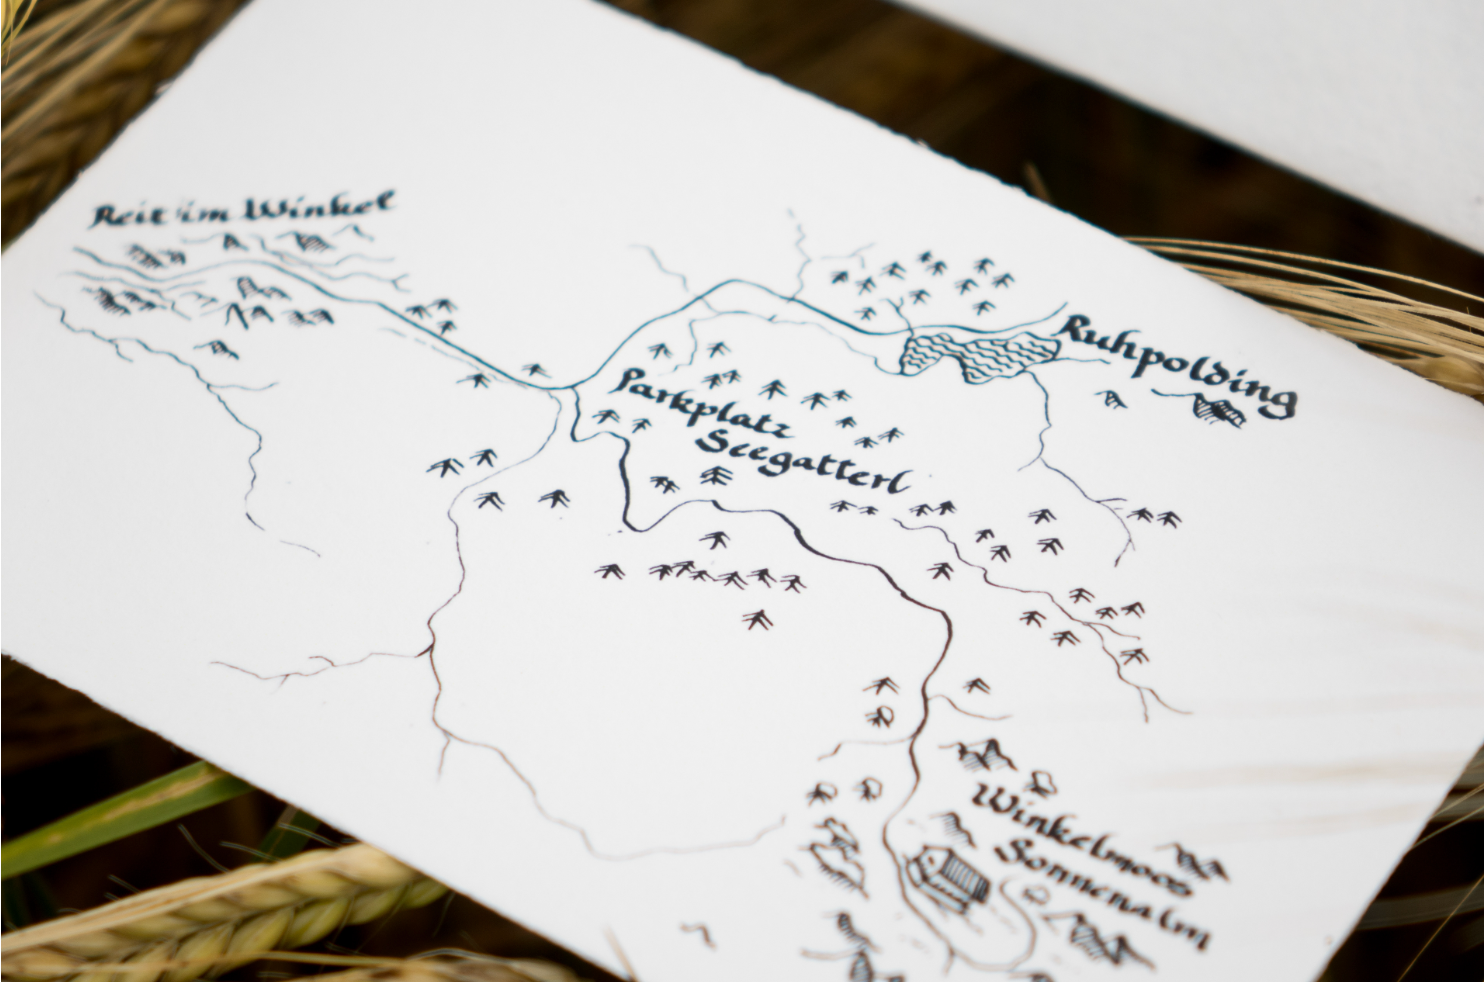 Reit im Winkel
Ruhpolding
Parkplatz
Seegatterl
Winkelmoos
Sonnenalm